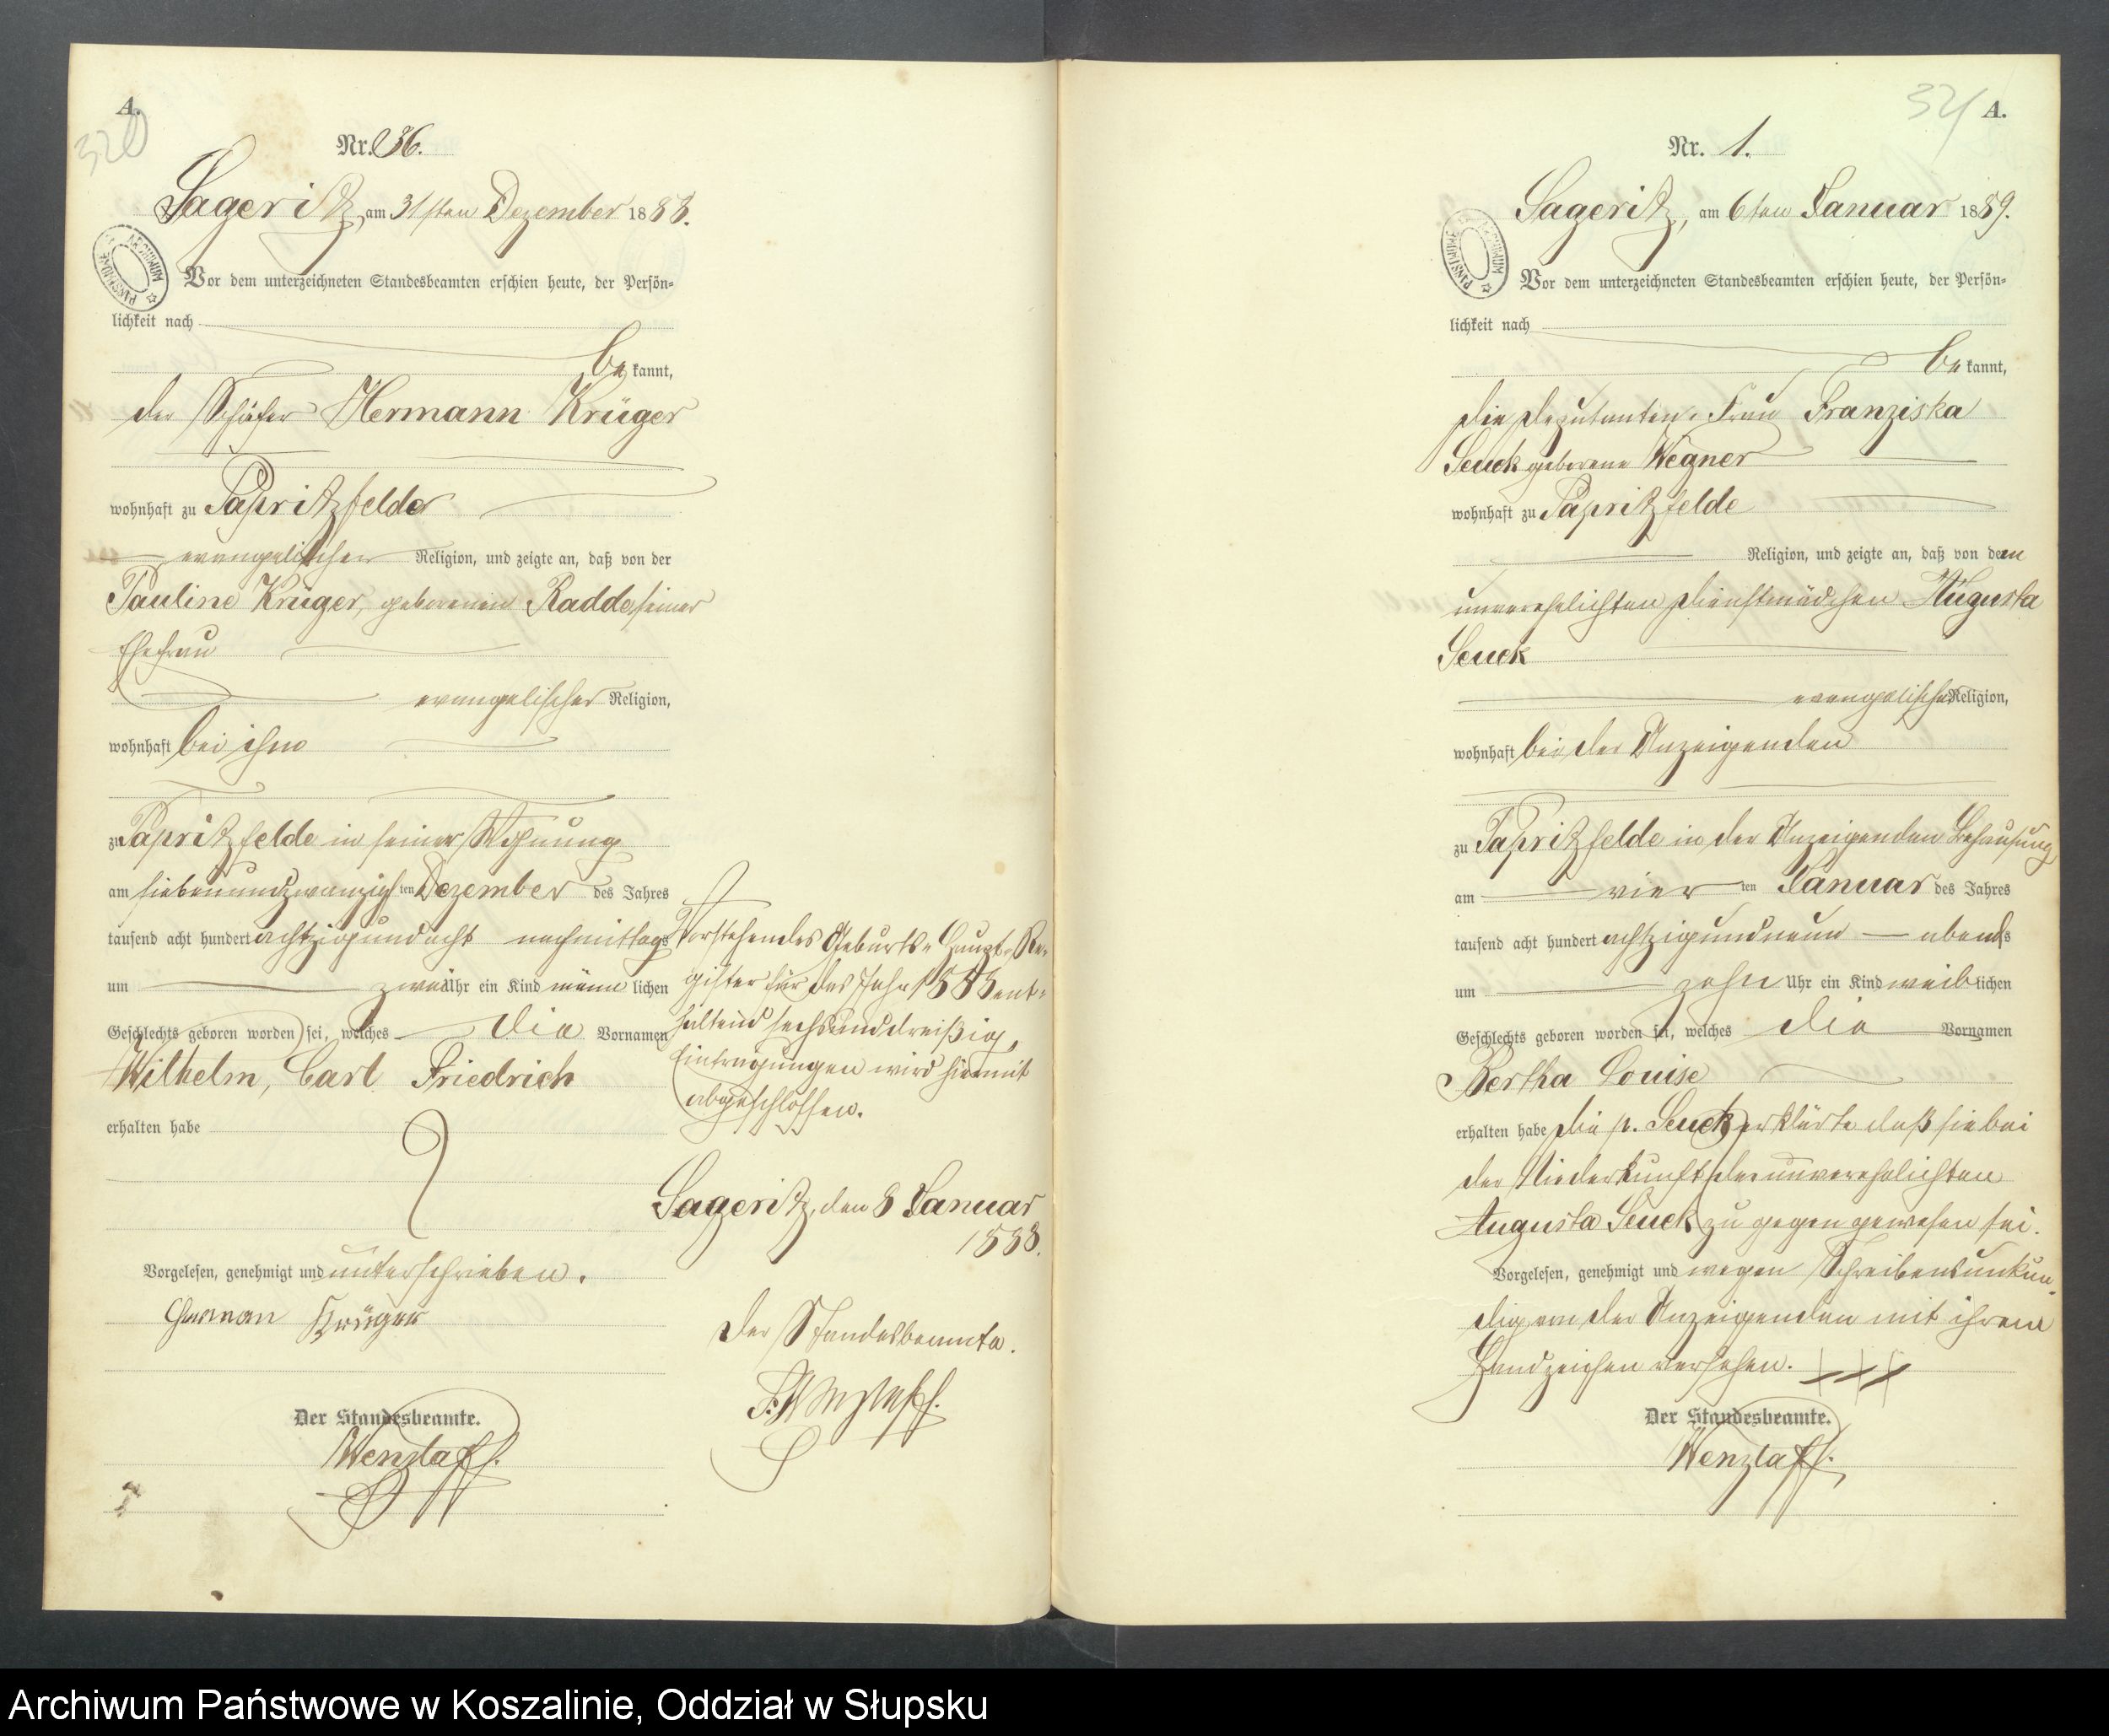 A.
320
Nr. 36.
Sageritz, am 31sten Dezember 1888.
Vor dem unterzeichneten Standesbeamten erschien heute, der Persön-
lichkeit nach
be kannt,
der Schäfer Hermann Krüger
wohnhaft zu Papritzfelde
evangelischer Religion, und zeigte an, daß von der
Pauline Krüger, geborenen Radde seiner
Ehefrau
evangelischer Religion,
wohnhaft bei ihm
zu Papritzfelde in seiner Wohnung
am siebenundzwanzigsten Dezember des Jahres
tausend acht hundert achtzigundacht nachmittags
um zwei Uhr ein Kind männ lichen
Geschlechts geboren worden sei, welches die Vornamen
Wilhelm, Carl Friedrich
erhalten habe
Vorgelesen, genehmigt und unterschrieben.
Herman Krüger
Der Standesbeamte.
Wenzlaff.
Vorstehendes Geburts-Haupt-Re-
gister für das Jahr 1888 ent-
haltend sechsunddreißig
Eintragungen wird hiermit
abgeschlossen.
Sageritz, den 8 Januar
1888.
Der Standesbeamte.
F. Wenzlaff.
321
A.
Nr. 1.
Sageritz, am 6ten Januar 1889.
Vor dem unterzeichneten Standesbeamten erschien heute, der Persön-
lichkeit nach
be kannt,
die Deputanten-Frau Franziska
Senck geborene Wegner
wohnhaft zu Papritzfelde
Religion, und zeigte an, daß von dem
unverehelichten Dienstmädchen Augusta
Senck
evangelischer Religion,
wohnhaft bei der Anzeigenden
zu Papritzfelde in der Anzeigenden Behausung
am vier ten Januar des Jahres
tausend acht hundert achtzigundneun abends
um zehn Uhr ein Kind weib lichen
Geschlechts geboren worden sei, welches die Vornamen
Bertha Louise
erhalten habe die p. Senck erklärte daß sie bei
der Niederkunft der unverehelichten
Augusta Senck zu gegen gewesen sei.
Vorgelesen, genehmigt und wegen Schreibensunkun-
dig von der Anzeigenden mit ihrem
Handzeichen versehen. +++
Der Standesbeamte.
Wenzlaff.
Archiwum Państwowe w Koszalinie, Oddział w Słupsku